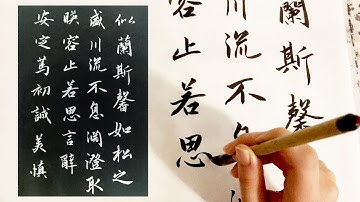 似蘭斯馨如松之
盛川流不息淵澄取
暎容止若思言辭
安定篤初誠美慎
蘭斯馨
川流不息
容止若思